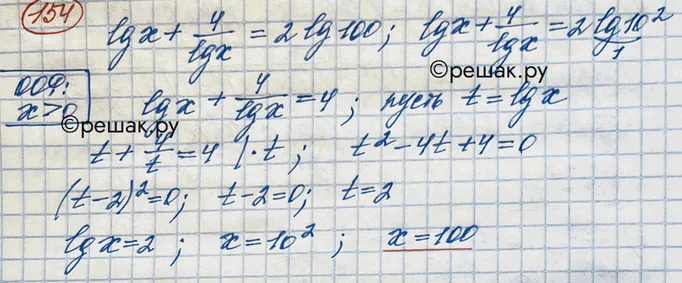 154
lg x + 4/lg x = 2 lg 100; lg x + 4/lg x = 2 lg 10²
1
©решак.ру
ООФ:
x > 0
lg x + 4/lg x = 4; пусть t = lg x
©решак.ру
t + 4/t = 4 | · t; t² - 4t + 4 = 0
(t - 2)² = 0; t - 2 = 0; t = 2
lg x = 2; x = 10²; x = 100